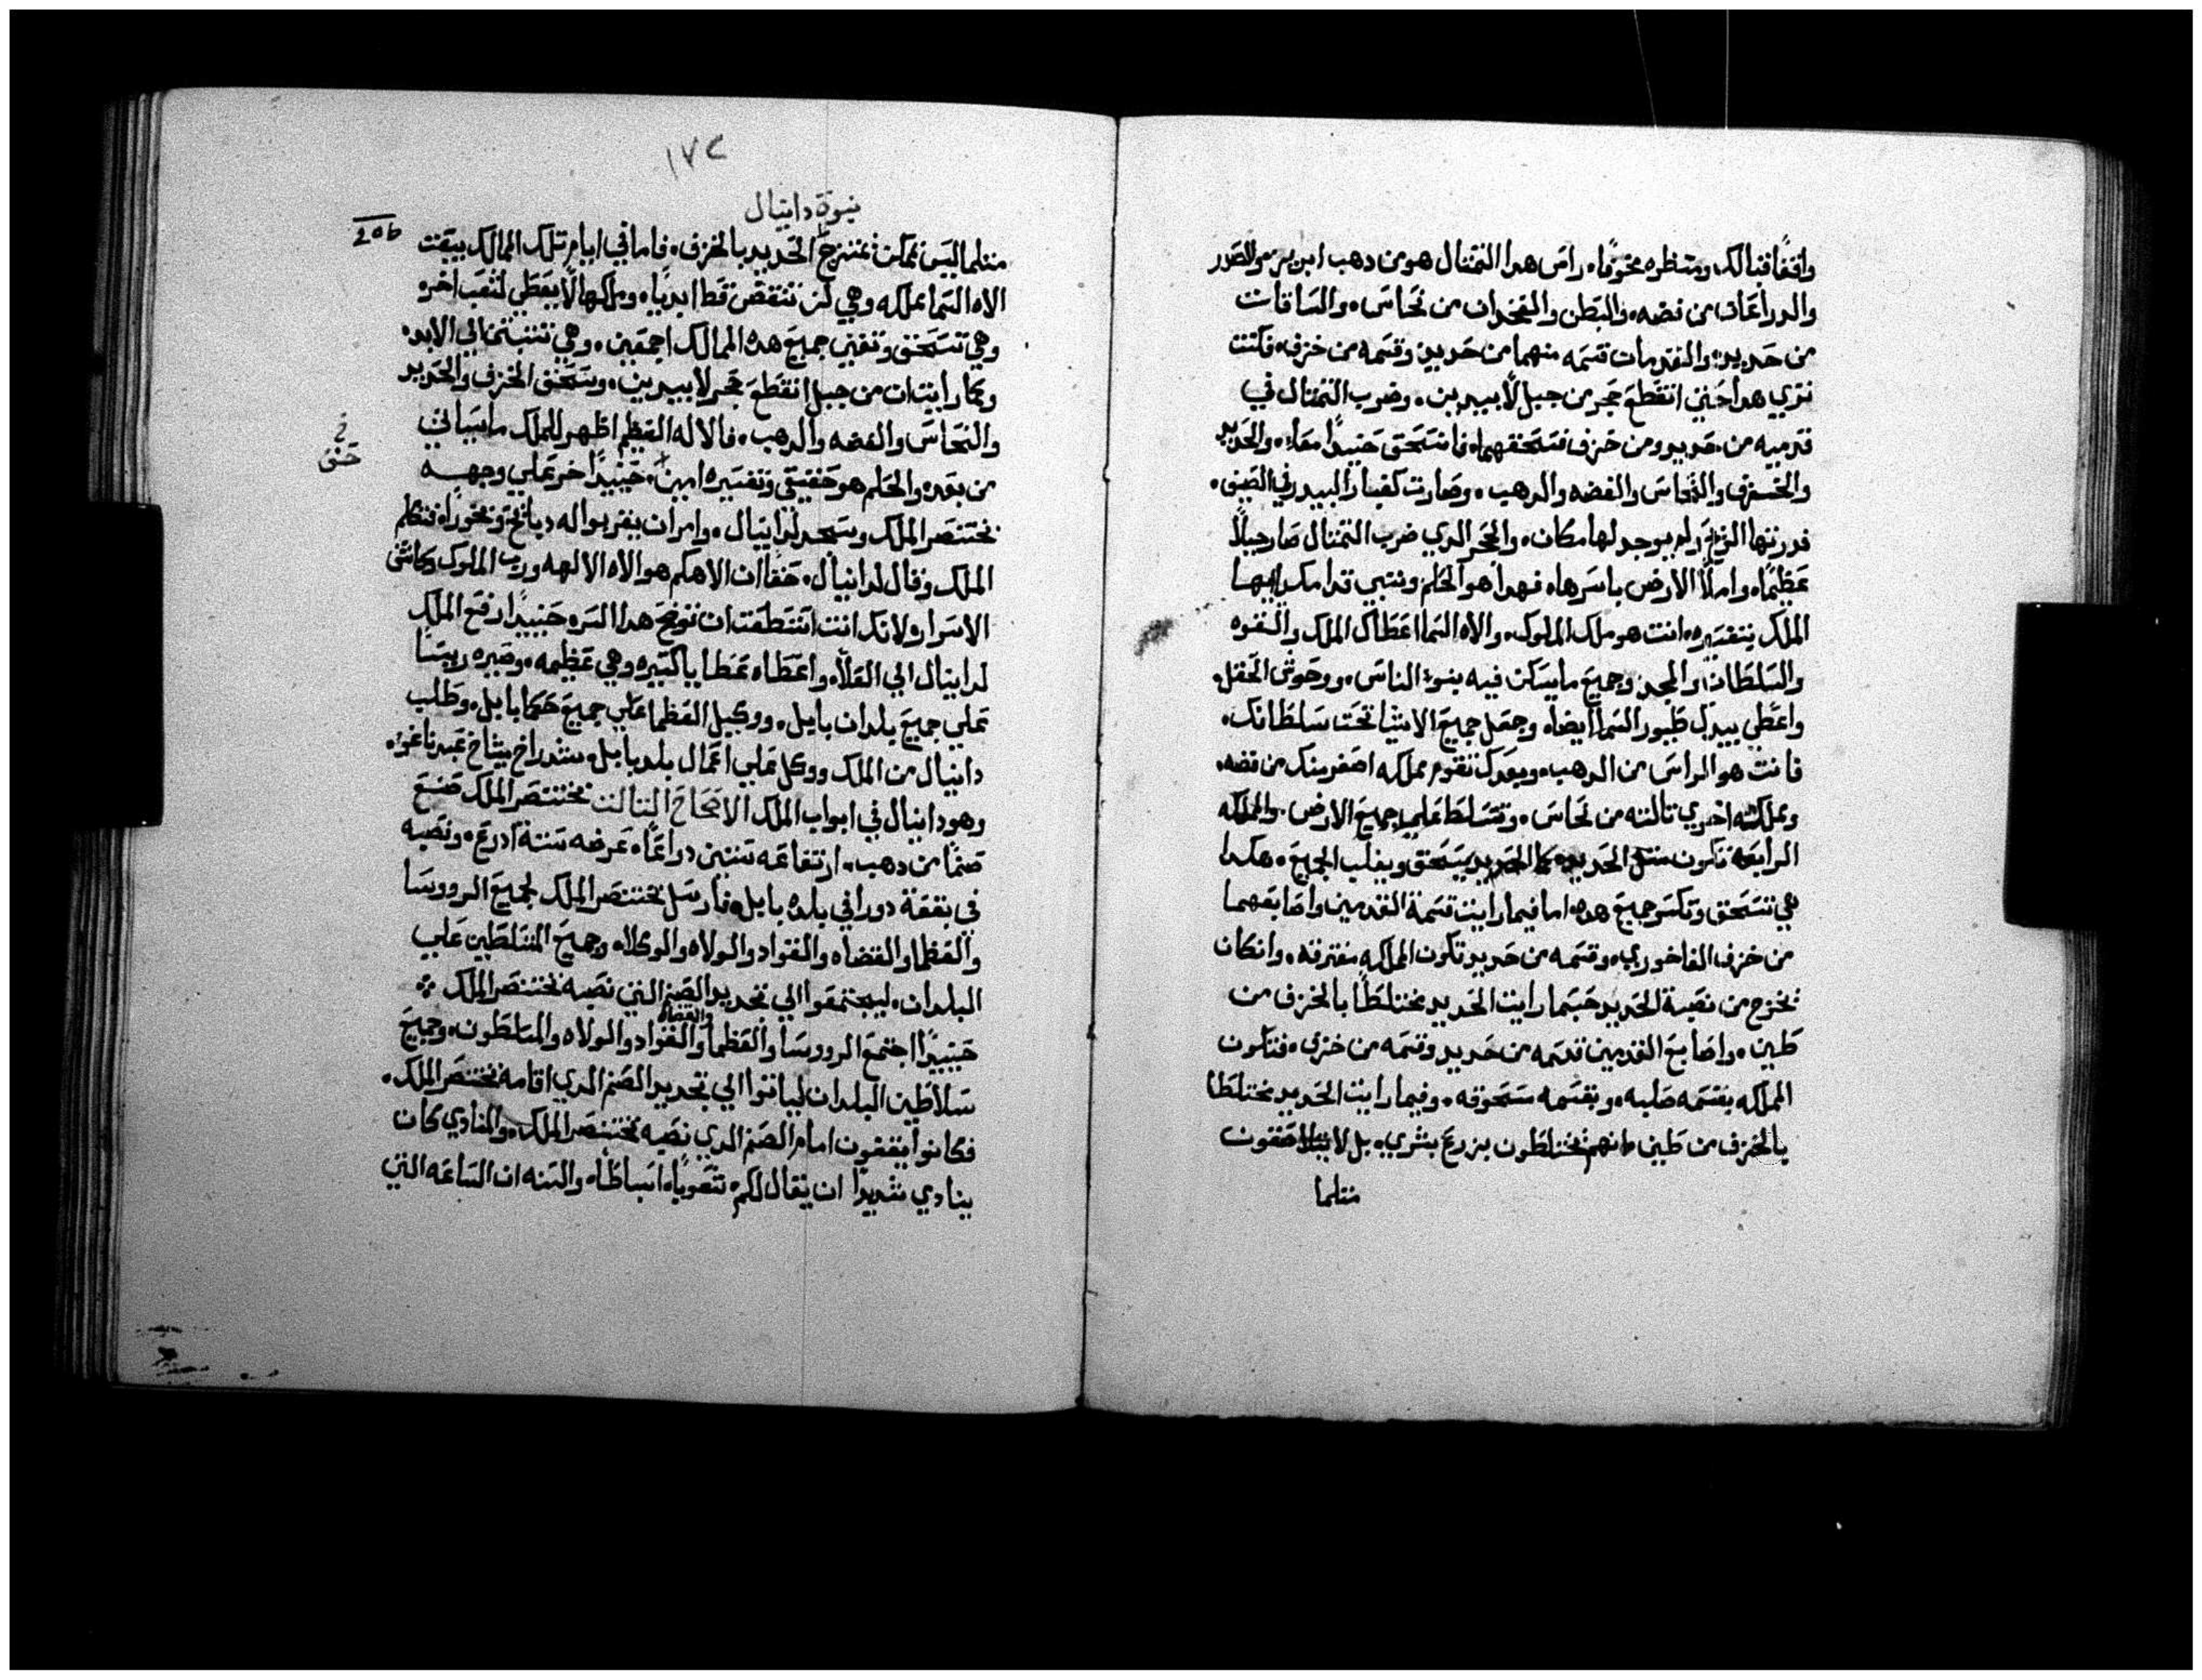 واقفًا قبالك ومنظره مخوفًا، راس هدا التمتال هو من دهب ابريز، والصدر
والدراعان من فضه، والبطن والفخدان من نحاس، والساقات
من حديد، والقدمات قسمه منهما من حديد وقسمه من خزف، فكنت
تري هدا حتي انقطع حجر من جبل لا بيدين، وضرب التمتال في
قدميه من حديد ومن خزف فسحقهما، فانسحق حنيدًا معًا، والحديد
والخزف والنحاس والفضه والدهب، وصارت كغبار البيدر في الصيف،
فدرتها الريح ولم يوجد لها مكان، والحجر الدي ضرب التمتال صار جبلًا
عظيمًا، واملأ الارض باسرها، فهدا هو الحلم ونتبي قدامك ايها
الملك بتفسيره، انت هو ملك الملوك، والاه السما اعطاك الملك والقوه
والسلطان والمجد، وجميع ما يسكن فيه بنوء الناس، ووحوش الحقل،
واعطي بيدك طيور السما ايضا، وجعل جميع الاشيا تحت سلطانك،
فانت هو الراس من الدهب، وبعدك تقوم مملكه اصغر منك من فضه،
ومملكه اخري تالته من نحاس، وتتسلط علي جميع الارض، والمملكه
الرابعه تكون متل الحديد، كما الحديد يسحق ويغلب الجميع، هكدا
هي تسحق وتكسر جميع هده، اما فيما رايت قسمة القدمين واصابعهما
من خزف الفاخوري، وقسمه من حديد تكون المملكه مفترقه، وانكان
تخرج من نصبة الحديد حسبما رايت الحديد مختلطًا بالخزف من
طين، واصابع القدمين قسمه من حديد وقسمه من خزف، فتكون
المملكه بقسمه صلبه، وبقسمه سحوقه، وفيما رايت الحديد مختلطا
بالخزف من طين، انهم يختلطون بزرع بشري، بل لا يتلاصقون
متلما
١٧٢
نبوة دانيال
206
متلما ليس يمكن يمتزج الحديد بالخزف، فاما في ايام تلك الممالك يبعت
الاه السما مملكه وهي لن تنتقض قط ابديًا، وملكها لا يعطي لشعب اخر،
وهي تسحق وتفني جميع هده الممالك اجمعين، وهي تتبت الي الابد،
وبما رايت ان من جبل انقطع حجر لا بيدين، وسحق الخزف والحديد
والنحاس والفضه والدهب، فالاله العظيم اظهر للملك ما سياتي
من بعده، والحلم هو حقيقي وتفسيره امين، حينيدًا خر علي وجهه
بختنصر الملك وسجد لدانيال، وامر ان يقربوا له دبايح وبخورًا، فتكلم
الملك وقال لدانيال، حقًا ان الاهكم هو الاه الالهه ورب الملوك وكاشف
الاسرار، لانك انت استطعت ان توضح هدا السر، حينيدًا رفع الملك
لدانيال الي العلا، واعطاه عطايا كتيره وهي عظيمه، وصيره ريسًا
علي جميع بلدان بابل، ووكيل العظما علي جميع حكما بابل، وطلب
دانيال من الملك ووكل علي اعمال بلد بابل، شدراخ ميشاخ عبدناغوا،
وهو دانيال في ابواب الملك الاصحاح التالت بختنصر الملك صنع
صنمًا من دهب، ارتفاعه ستين دراعًا، عرضه ستة ادرع، ونصبه
في بقعة دورا في بلده بابل، فارسل بختنصر الملك لجميع الرووسا
والعظما والقضاه والقواد والولاه والوكلا، وجميع المتسلطين علي
البلدان، ليجتمعوا الي تجديد الصنم التي نصبه بختنصر الملك
حينيدًا اجتمع الرووسا والعظما والقضاه والقواد والولاه والمسلطون، وجميع
سلاطين البلدان لياتوا الي تجديد الصنم الدي اقامه بختنصر الملك،
فكانوا يقفون امام الصنم الدي نصبه بختنصر الملك، والمنادي كان
ينادي شديدًا ان يقال لكم، شعوبًا، اسباطًا، والسنه ان الساعه التي